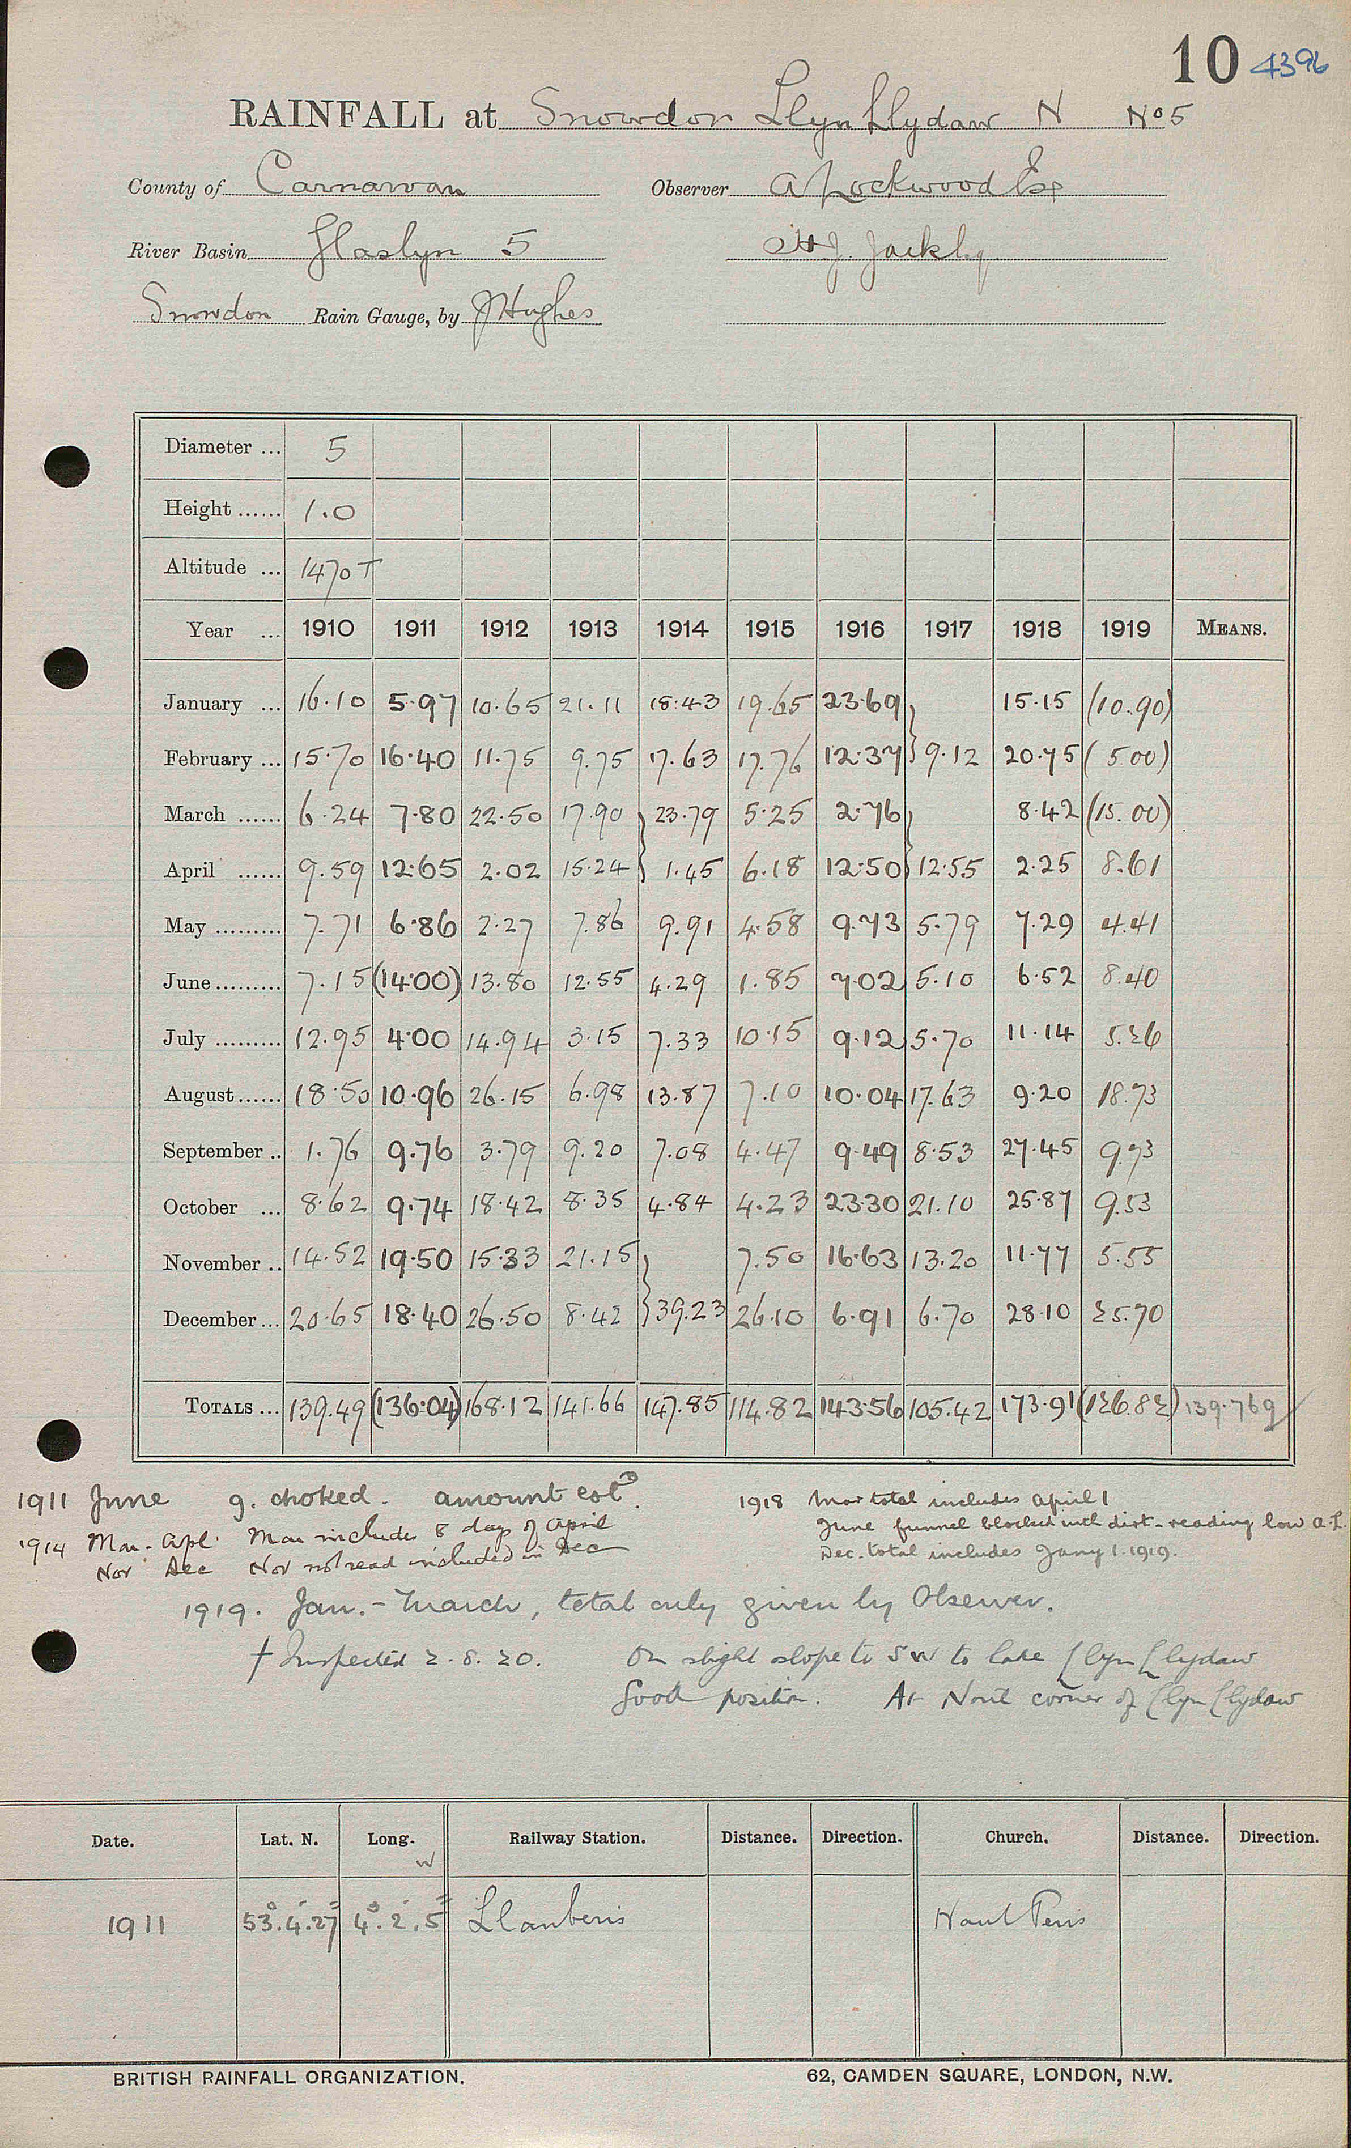 10 4396
RAINFALL at Snowdon Llyn Llydaw N No 5
County of Carnarvon Observer A Lockwood Esq
River Basin Glaslyn 5 H.J. Jack Esq
Snowdon Rain Gauge, by J Hughes
Diameter ... 5
Height ...... 1.0
Altitude ... 1470 T
Year ... 1910 1911 1912 1913 1914 1915 1916 1917 1918 1919 MEANS.
January ... 16.10 5.97 10.65 21.11 18.43 19.65 23.69 15.15 (10.90)
February ... 15.70 16.40 11.75 9.75 17.63 17.76 12.37 } 9.12 20.75 (5.00)
March ...... 6.24 7.80 22.50 17.90 23.79 5.25 2.76 8.42 (15.00)
April ...... 9.59 12.65 2.02 15.24 } 1.45 6.18 12.50 } 12.55 2.25 8.61
May ......... 7.71 6.86 2.27 7.86 9.91 4.58 9.73 5.79 7.29 4.41
June ......... 7.15 (14.00) 13.80 12.55 4.29 1.85 7.02 5.10 6.52 8.40
July ......... 12.95 4.00 14.94 3.15 7.33 10.15 9.12 5.70 11.14 5.26
August ...... 18.50 10.96 26.15 6.98 13.87 7.10 10.04 17.63 9.20 18.73
September .. 1.76 9.76 3.79 9.20 7.08 4.47 9.49 8.53 27.45 9.73
October ... 8.62 9.74 18.42 8.35 4.84 4.23 23.30 21.10 25.87 9.53
November .. 14.52 19.50 15.33 21.15 7.50 16.63 13.20 11.77 5.55
December ... 20.65 18.40 26.50 8.42 } 39.23 26.10 6.91 6.70 28.10 25.70
TOTALS ... 139.49 (136.04) 168.12 141.66 147.85 114.82 143.56 105.42 173.91 (126.82) 139.769
1911 June g. choked. amount estd.
1918 Mar total includes April 1
1914 Mar. Apl. Mar includes 8 days of April
June funnel blocked with dirt - reading low A.L.
Nov Dec Nov not read included in Dec
Dec. total includes Jany 1. 1919.
1919. Jan. - March, total only given by Observer.
† Inspected 2.8.20. On slight slope to SW to lake Llyn Llydaw
Good position. At North corner of Llyn Llydaw
Date. Lat. N. Long. W Railway Station. Distance. Direction. Church. Distance. Direction.
1911 53° 4' 27" 4° 2' 5" Llanberis Nant Peris
BRITISH RAINFALL ORGANIZATION. 62, CAMDEN SQUARE, LONDON, N.W.